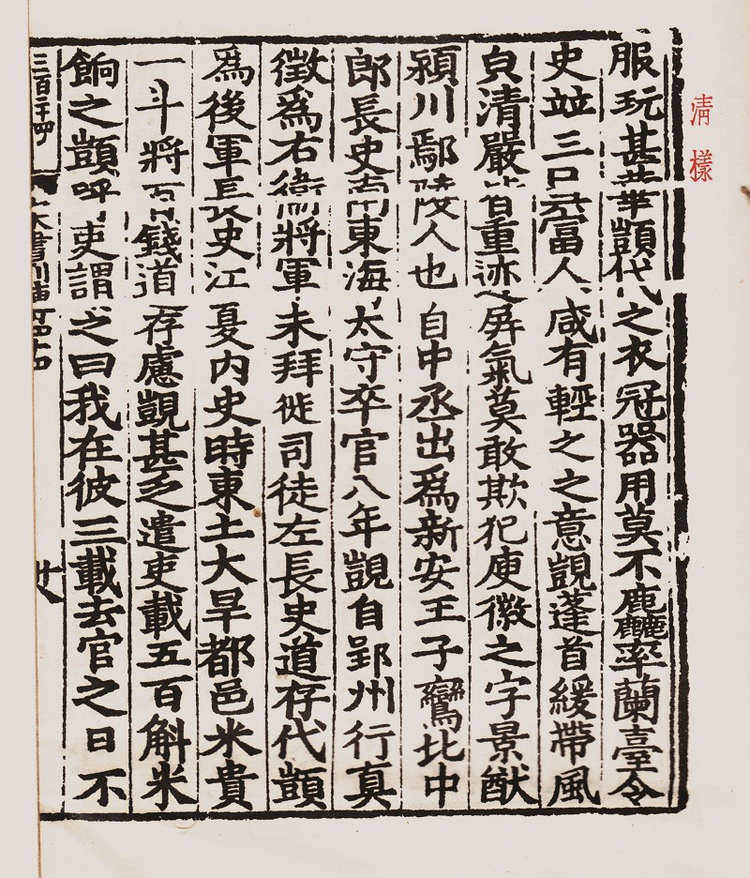 清樣
服玩甚華顗代之衣冠器用莫不麤率蘭臺令
史竝三吳富人咸有輕之之意覬蓬首緩帶風
皃清嚴皆重迹屏氣莫敢欺犯庾徽之字景猷
潁川鄢陵人也自中丞出爲新安王子鸞北中
郎長史南東海太守卒官八年覬自郢州行真
徵爲右衛將軍未拜徙司徒左長史道存代顗
爲後軍長史江夏内史時東土大旱都邑米貴
一斗將百錢道存慮覬甚乏遣吏載五百斛米
餉之顗呼吏謂之曰我在彼三載去官之日不